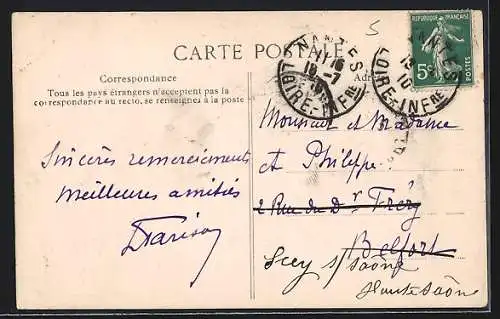 CARTE POSTALE
Correspondance
Tous les pays étrangers n'acceptent pas la
correspondance au recto, se renseigner à la poste
Sincères remerciements
Meilleures amitiés
RÉPUBLIQUE FRANÇAISE
5c
POSTES
NANTES
LOIRE-INFRE
LOIRE-INFRE
Monsieur et Madame
A Philippe.
2 Rue du Dr Fréry
Belfort
Scey s/ saône
Haute saône